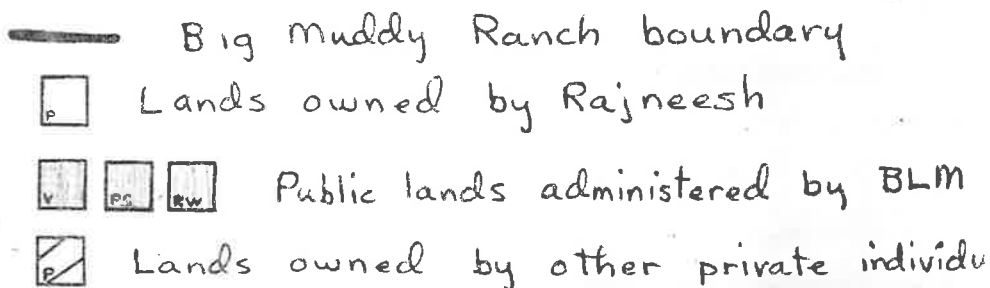 Big Muddy Ranch boundary
P Lands owned by Rajneesh
V PS RW Public lands administered by BLM
P Lands owned by other private individu